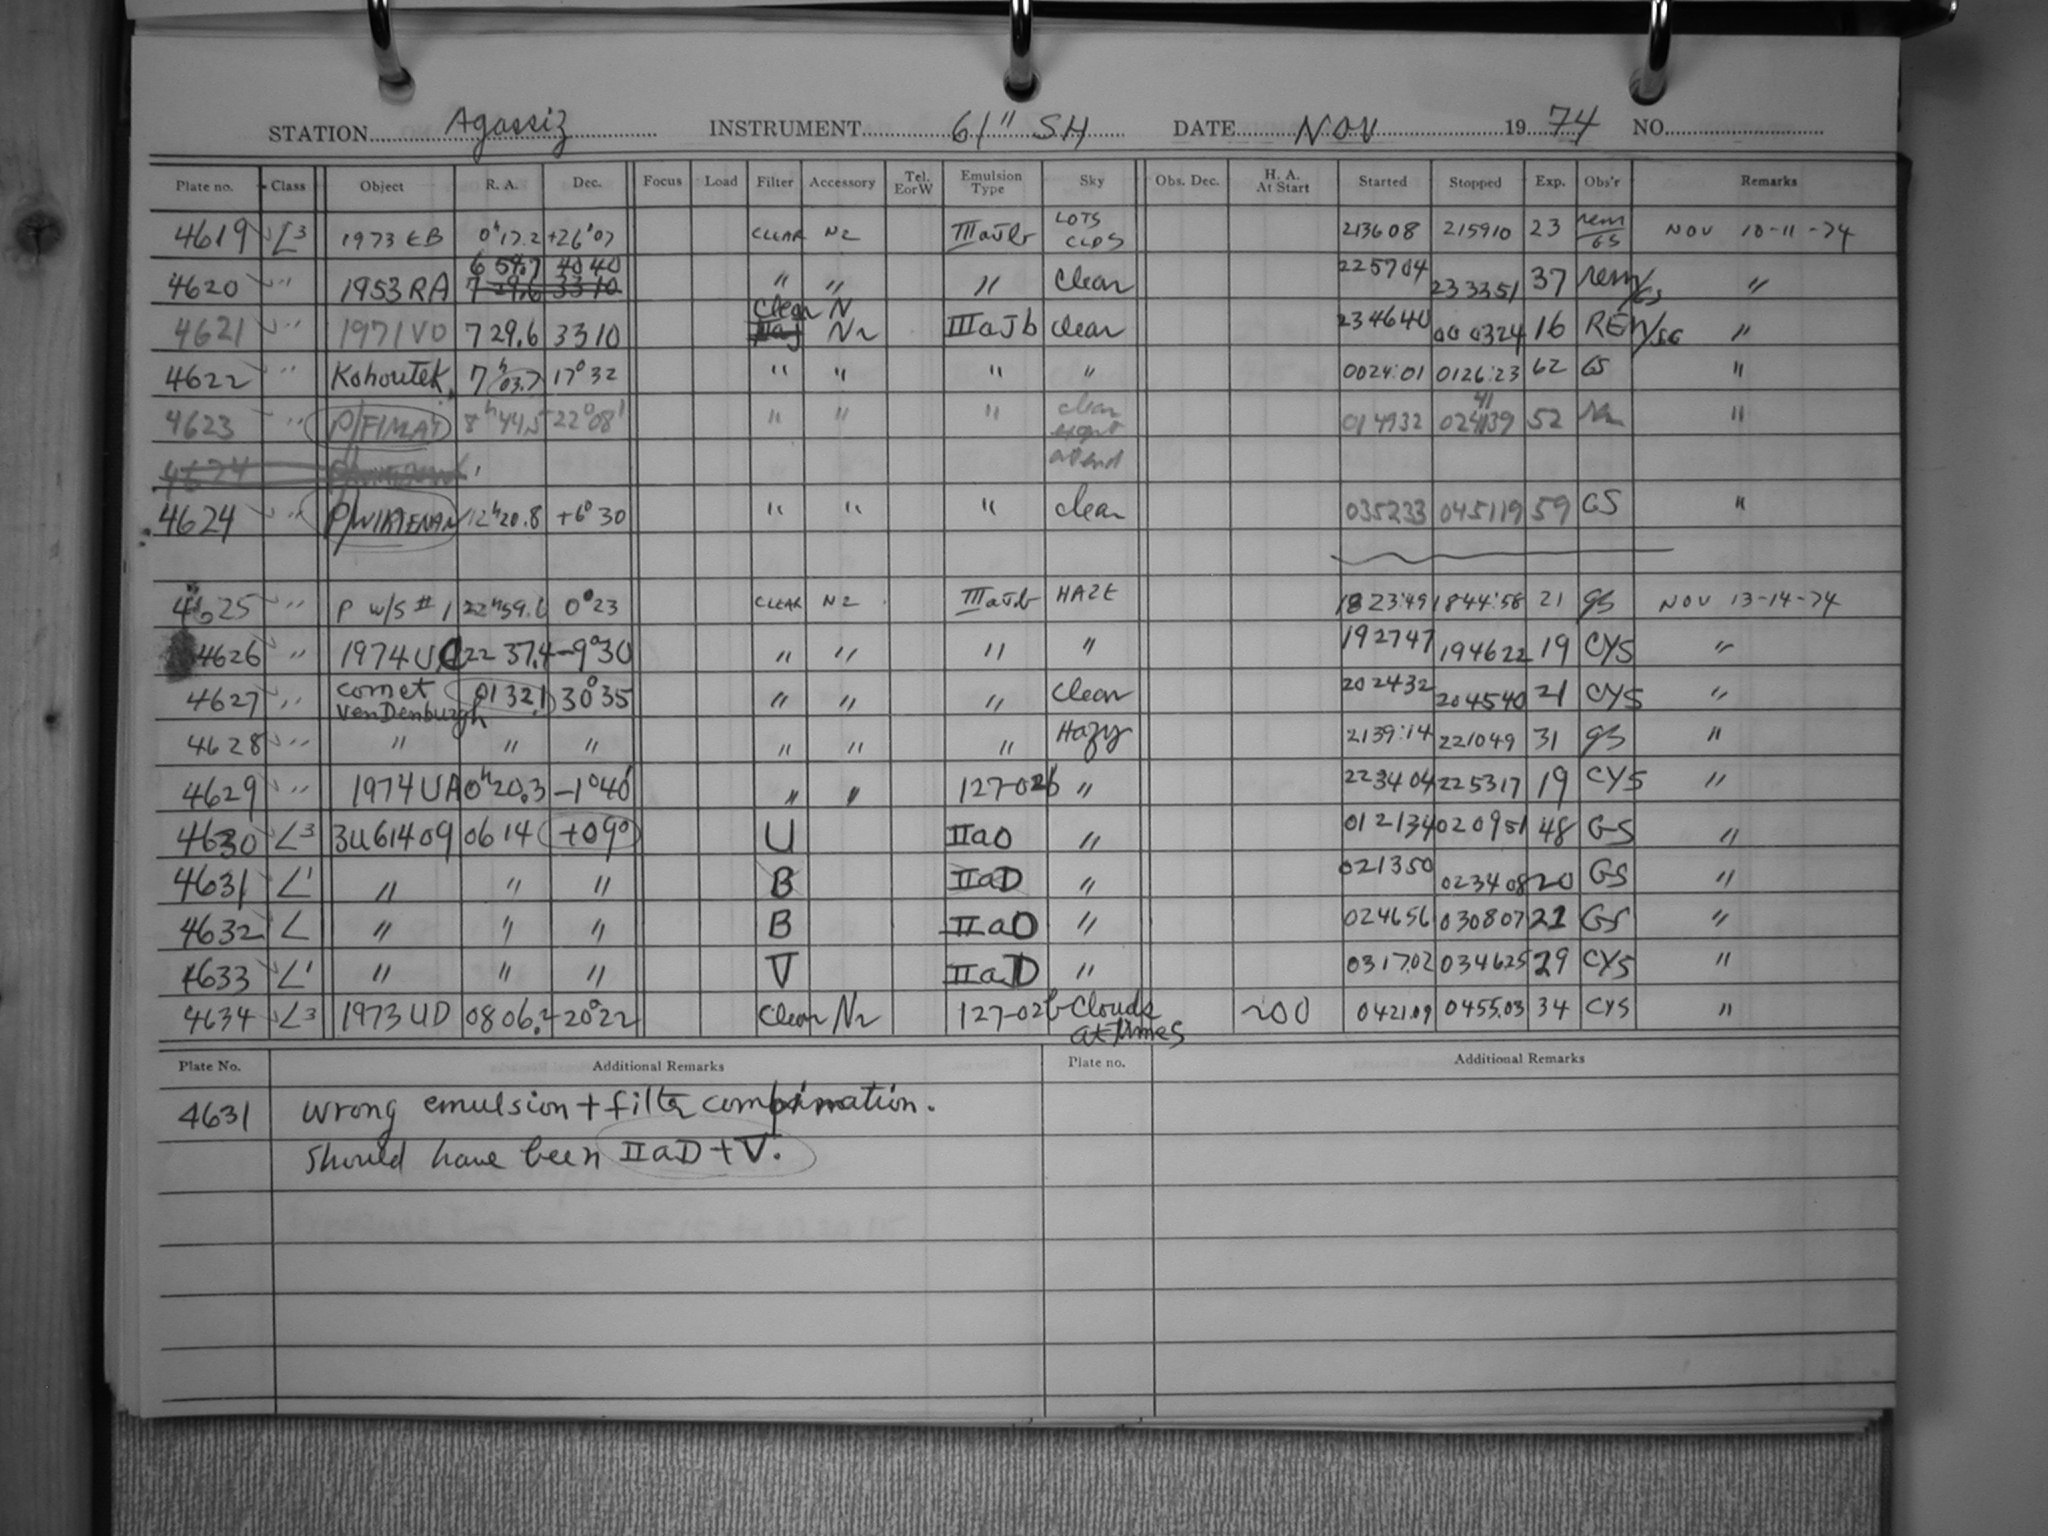 STATION Agassiz INSTRUMENT 61" SH DATE NOV 19 74 NO.
Plate no. Class Object R. A. Dec. Focus Load Filter Accessory Tel. E or W Emulsion Type Sky Obs. Dec. H. A. At Start Started Stopped Exp. Obs'r Remarks
4619 L3 1973 EB 0h17.2 +26°07 CLEAR N2 IIIaJb LOTS CLDS 213608 215910 23 rem/GS NOV 10-11-74
4620 " 1953 RA 6 54.7 40 40 " " " Clear 225704 233351 37 rem/GS "
7 29.6 33 10
4621 " 1971 VO 7 29.6 33 10 Clear N2 IIIaJb clear 234640 000324 16 REM/SG "
4622 " Kohoutek 7h03.7 17°32 " " " " 0024:01 0126:23 62 GS "
4623 " P/FINLAY 8h44.5 22°08' " " " clear except at end 014932 024139 52 "
4624
4624 " P/WIRTENAN 12h20.8 +6°30 " " " clear 035233 045119 59 GS "
4625 " P W/S #1 22h59.6 0°23 CLEAR N2 IIIaJb HAZE 1823:49 1844:58 21 gs NOV 13-14-74
4626 " 1974 UC 22 37.4 -9°30 " " " " 192747 194622 19 CYS "
4627 " comet VenDenburgh 01 32.1 30°35 " " " Clear 202432 204540 21 CYS "
4628 " " " " " " " Hazy 2139:14 221049 31 gs "
4629 " 1974 UA 0h20.3 -1°40' " " 127-02b " 223404 225317 19 CYS "
4630 L3 3U61409 06 14 +09° U IIaO " 012134 020951 48 GS "
4631 L1 " " " B IIaD " 021350 023408 20 GS "
4632 L " " " B IIaO " 024656 030807 21 GS "
4633 L1 " " " V IIaD " 031702 034625 29 CYS "
4634 L3 1973 UD 08 06.2 20°22 Clear N2 127-02b Clouds at times ~00 0421.09 0455.03 34 CYS "
Plate No. Additional Remarks Plate no. Additional Remarks
4631 wrong emulsion + filter combination.
should have been IIaD + V.